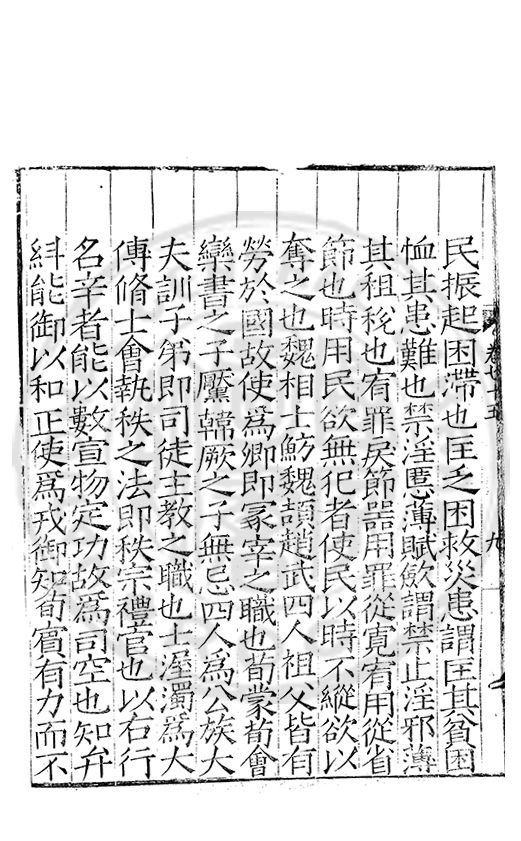 民振起困滯也匡乏困救災患謂匡其貧困
恤其患難也禁淫慝薄賦歛謂禁止淫邪薄
其租稅也宥罪戾節器用罪從寬宥用從省
節也時用民欲無犯者使民以時不縱欲以
奪之也魏相士魴魏頡趙武四人祖父皆有
勞於國故使爲卿即冢宰之職也荀蒙荀會
欒書之子黶韓厥之子無忌四人爲公族大
夫訓子弟即司徒主教之職也士渥濁爲大
傅脩士會執秩之法即秩宗禮官也以右行
名辛者能以數宣物定功故爲司空也知弁
糾能御以和正使爲戎御知荀賓有力而不
卷七十五
九